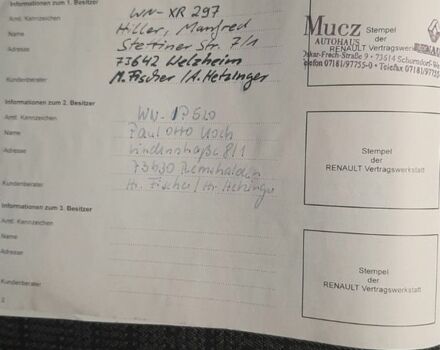 Informationen zum 1. Besitzer
Amtl. Kennzeichen WN-XR 297
Name Hiller, Manfred
Adresse Stettiner Str. 7/1
73642 Welzheim
Kundenberater M. Fischer / A. Hetzinger
Mucz
AUTOHAUS
Stempel
der
RENAULT Vertragswerkstatt
Oskar-Frech-Straße 9 • 73614 Schorndorf
Telefon 07181/97755-0 • Telefax 07181/97755
Informationen zum 2. Besitzer
Amtl. Kennzeichen WN-
Name Paul Otto Koch
Adresse Lindenstraße 8/1
73630 Remshalden
Kundenberater Hr. Fischer / Hr. Hetzinger
Stempel
der
RENAULT Vertragswerkstatt
Informationen zum 3. Besitzer
Amtl. Kennzeichen
Name
Adresse
Kundenberater
Stempel
der
RENAULT Vertragswerkstatt